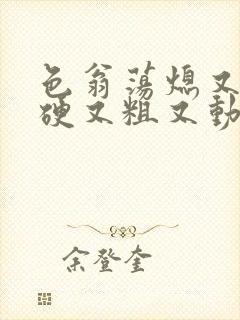 色翁荡熄又
硬又粗又動
余登奎